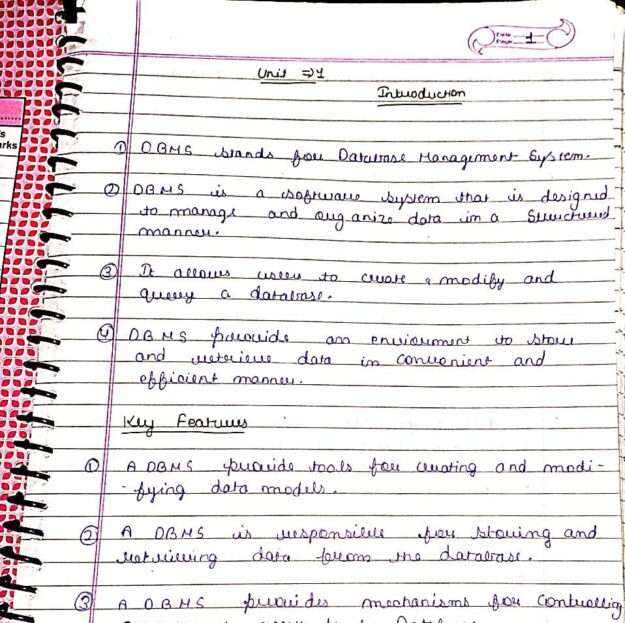 1
Unit ⇒ 1
Introduction
① DBMS stands for Database Management System.
② DBMS is a software system that is designed
to manage and organize data in a Structured
manner.
③ It allows user to create, modify and
query a database.
④ DBMS provide an enviorment to store
and retrieve data in convenient and
efficient manner.
Key Features
① A DBMS provide tools for creating and modi-
-fying data models.
② A DBMS is responsible for storing and
retrieving data from the database.
③ A DBMS provides mechanisms for controlling